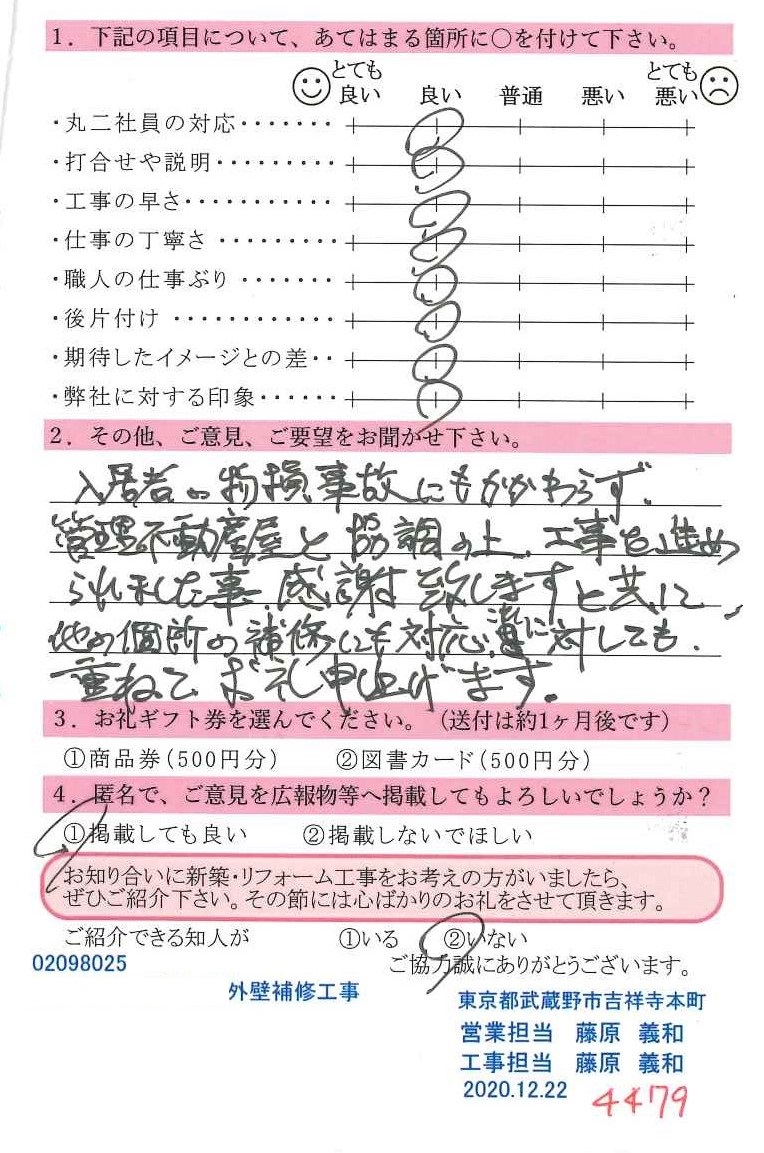 1．下記の項目について、あてはまる箇所に○を付けて下さい。
とても良い 良い 普通 悪い とても悪い
・丸二社員の対応・・・・・・・
・打合せや説明・・・・・・・・・
・工事の早さ・・・・・・・・・・・
・仕事の丁寧さ・・・・・・・・・
・職人の仕事ぶり・・・・・・・
・後片付け・・・・・・・・・・・・
・期待したイメージとの差・・
・弊社に対する印象・・・・・・
2．その他、ご意見、ご要望をお聞かせ下さい。
入居者の物損事故にもかかわらず、
管理不動産屋と協調の上、工事を進め
られました事、感謝致しますと共に、
他の個所の補修にも対応 これに対しても、
重ねて お礼申上げます。
3．お礼ギフト券を選んでください。（送付は約1ヶ月後です）
①商品券(500円分) ②図書カード(500円分)
4．匿名で、ご意見を広報物等へ掲載してもよろしいでしょうか？
①掲載しても良い ②掲載しないでほしい
お知り合いに新築・リフォーム工事をお考えの方がいましたら、
ぜひご紹介下さい。その節には心ばかりのお礼をさせて頂きます。
ご紹介できる知人が ①いる ②いない
ご協力誠にありがとうございます。
02098025
外壁補修工事
東京都武蔵野市吉祥寺本町
営業担当 藤原 義和
工事担当 藤原 義和
2020.12.22
4479